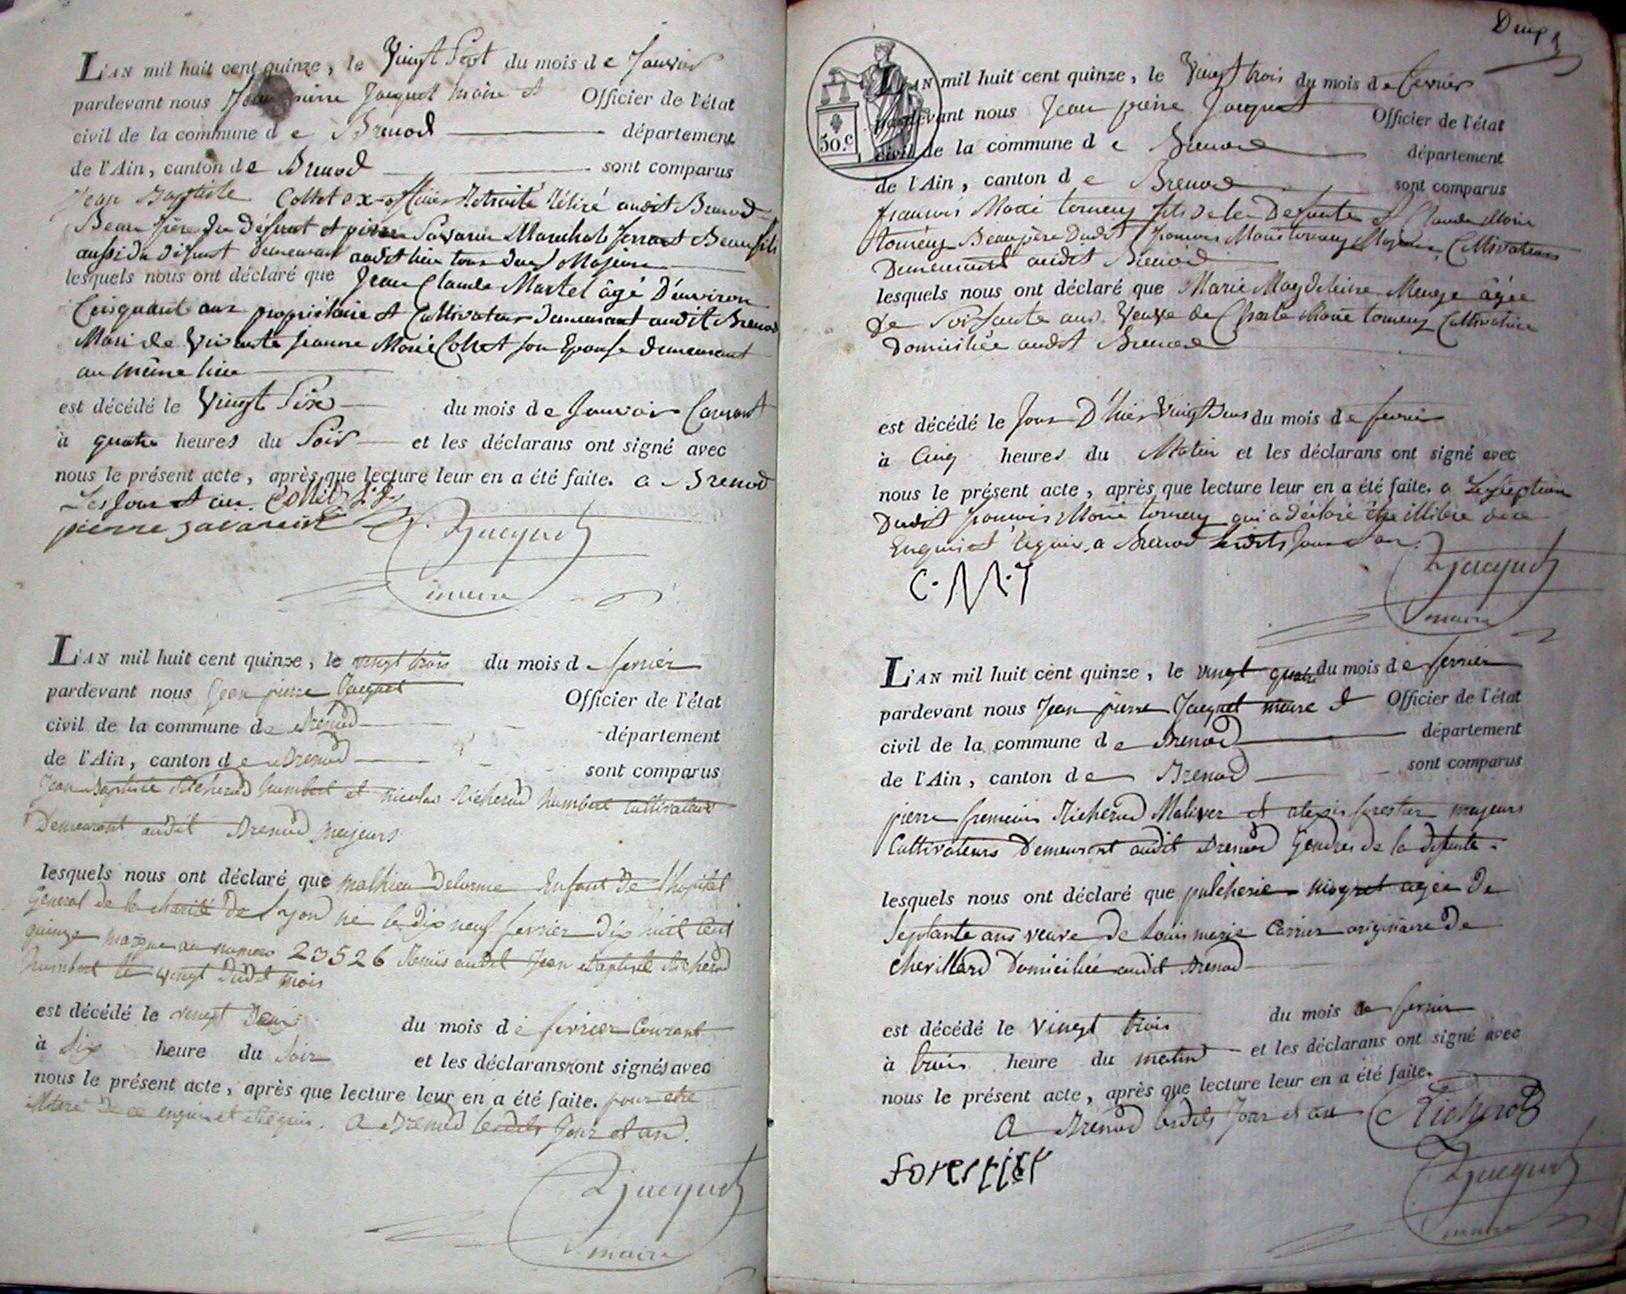 L'AN mil huit cent quinze, le Vingt Sept du mois de Janvier
pardevant nous Jean pierre Jacquet Maire et Officier de l'état
civil de la commune de Brenod département
de l'Ain, canton de Brenod sont comparus
Jean Baptiste Collet ex-officier Retraité Retiré audit Brenod
Beau frère du défunt et pierre Savarin Marechal ferrant Beau fils
aussi du défunt demeurant audit lieu tous deux Majeurs
lesquels nous ont déclaré que Jean Claude Martel âgé D'environ
Cinquant ans propriétaire et Cultivateur demeurant audit Brenod
Mari de Vivante Jeanne Marie Collet son Epouse demeurant
au même lieu
est décédé le Vingt Six du mois de Janvier Courant
à quatre heures du Soir et les déclarans ont signé avec
nous le présent acte, après que lecture leur en a été faite. a Brenod
Les Jour et an. Collet
pierre savarin Jacquet
maire
L'AN mil huit cent quinze, le vingt trois du mois de fevrier
pardevant nous Jean pierre Jacquet Officier de l'état
civil de la commune de Brenod département
de l'Ain, canton de Brenod sont comparus
Jean Baptiste Richerod humbert et nicolas Richerod humbert cultivateurs
Demeurant audit Brenod majeurs
lesquels nous ont déclaré que mathieu Delorme Enfant de l'hopital
General de la charité de Lyon né le dix neuf fevrier dix huit cent
quinze marque au numero 23526 Remis audit Jean Baptiste Richerod
humbert le vingt dudit mois
est décédé le vingt Deux du mois de fevrier Courant
à Six heure du Soir et les déclarans ont signés avec
nous le présent acte, après que lecture leur en a été faite. pour etre
illiteré de ce enquis et Requis. A Brenod lesdits Jour et an.
Jacquet
maire
50.c
L'AN mil huit cent quinze, le Vingt trois du mois de fevrier
pardevant nous Jean pierre Jacquet Officier de l'état
civil de la commune de Brenod département
de l'Ain, canton de Brenod sont comparus
francois Marie tornery fils de la Defunte et Claude Marie
tornery Beaupère Dudit francois Marie tornery Majeurs Cultivateurs
Demeurant audit Brenod
lesquels nous ont déclaré que Marie Magdeleine âgée
De Soixante ans Veuve de Charle Marie tornery Cultivatrice
Domiciliée audit Brenod
est décédé le Jour D'hier Vingt Deux du mois de fevrier
à Cinq heures du Matin et les déclarans ont signé avec
nous le présent acte, après que lecture leur en a été faite. a L'exception
Dudit francois Marie tornery qui a déclaré être illiteré de ce
Enquis et Requis, a Brenod lesdits Jour et an.
C.M.T Jacquet
maire
L'AN mil huit cent quinze, le vingt quatre du mois de fevrier
pardevant nous Jean pierre Jacquet maire et Officier de l'état
civil de la commune de Brenod département
de l'Ain, canton de Brenod sont comparus
pierre Richerod Maliver et alexis forestier majeurs
Cultivateurs Demeurant audit Brenod Gendres de la défunte
lesquels nous ont déclaré que pulcherie agée de
Septante ans veuve de Louis marie Carrier originaire de
Chevillard Domiciliée audit Brenod
est décédé le Vingt trois du mois de fevrier
à trois heure du matin et les déclarans ont signé avec
nous le présent acte, après que lecture leur en a été faite.
A Brenod lesdits Jour et an Richerod
Forestier Jacquet
maire